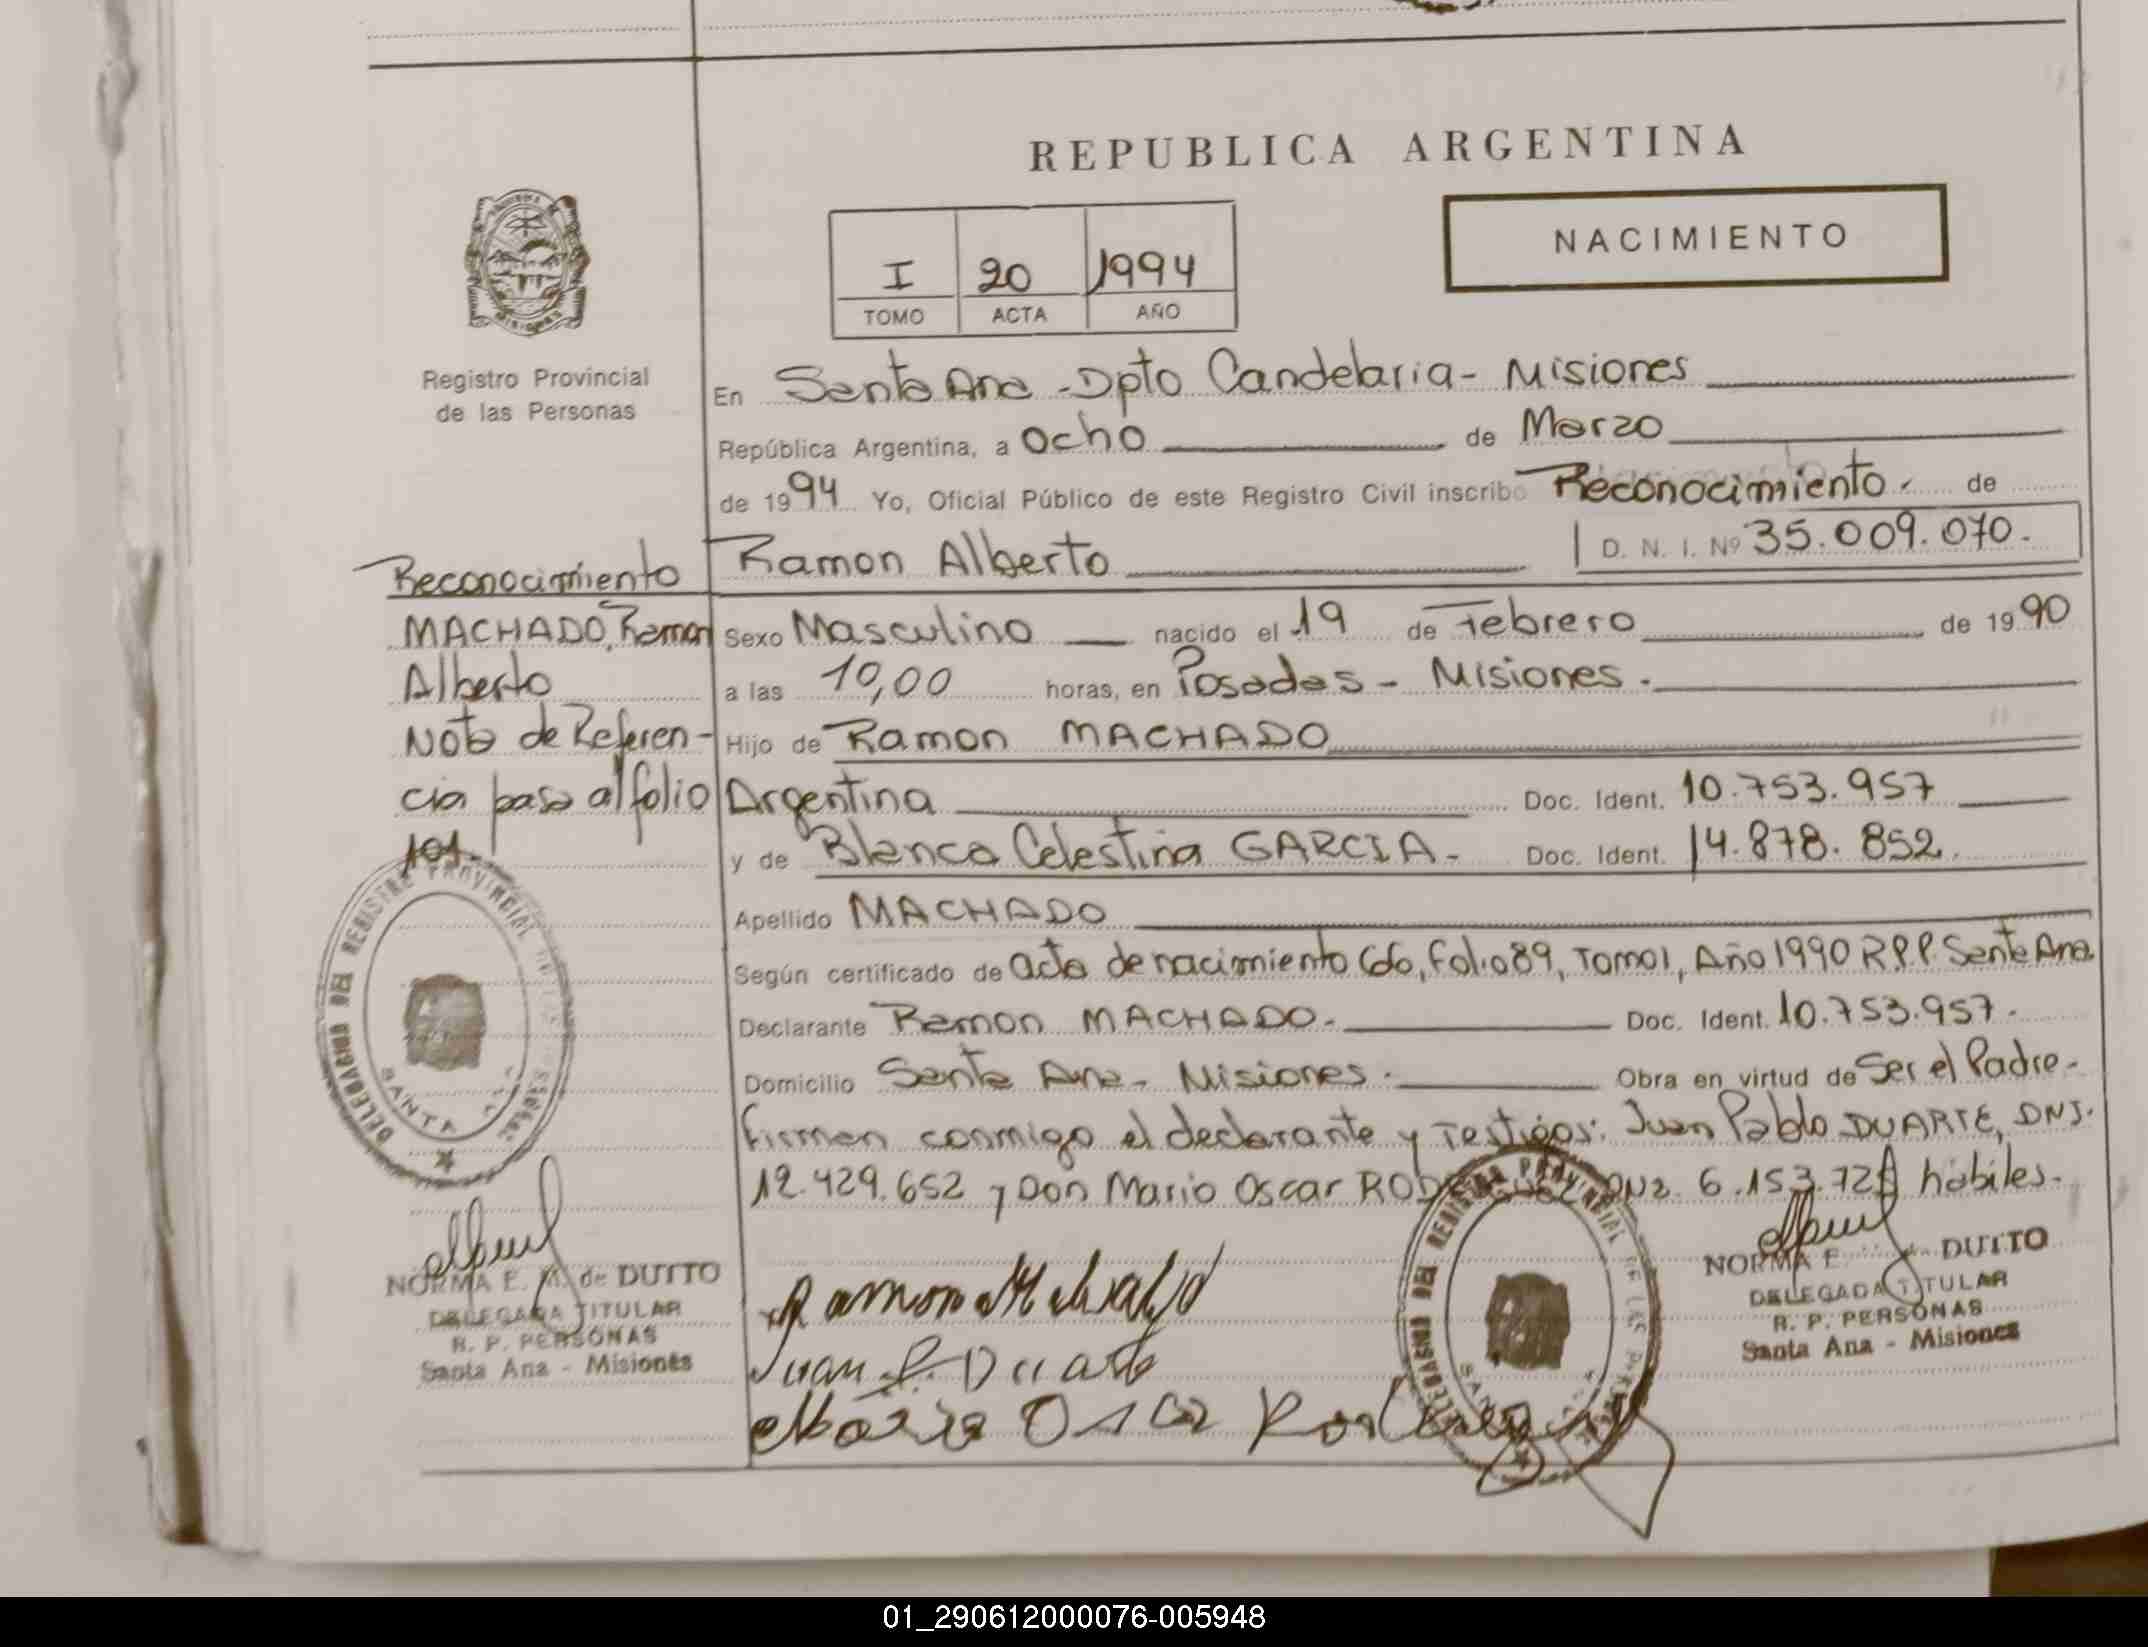 REPUBLICA ARGENTINA
NACIMIENTO
I 20 1994
TOMO ACTA AÑO
Registro Provincial
de las Personas
En Santa Ana - Dpto Candelaria - Misiones
República Argentina, a Ocho de Marzo
de 1994 Yo, Oficial Público de este Registro Civil inscribo Reconocimiento. de
Ramon Alberto D. N. I. Nº 35.009.070.
Sexo Masculino nacido el 19 de Febrero de 1990
a las 10,00 horas, en Posadas - Misiones.
Hijo de Ramon MACHADO
Argentina Doc. Ident. 10.753.957
y de Blanca Celestina GARCIA - Doc. Ident. 14.878.852.
Apellido MACHADO
Según certificado de acta de nacimiento Folio 89, Tomo 1, Año 1990 R.P.P. Santa Ana
Declarante Ramon MACHADO. Doc. Ident. 10.753.957.
Domicilio Santa Ana - Misiones. Obra en virtud de Ser el Padre -
Firman conmigo el declarante y Testigos: Juan Pablo DUARTE, DNI.
12.429.652 y Don Mario Oscar hábiles.
Reconocimiento
MACHADO, Ramon
Alberto
Nota de Referen-
cia pasa al folio
101.
DELEGACION DEL REGISTRO PROVINCIAL DE LAS PERSONAS
SANTA ANA
NORMA E. M. de DUTTO
DELEGADA TITULAR
R. P. PERSONAS
Santa Ana - Misiones
Ramon Machado
Juan P. Duarte
Mario Oscar
DELEGACION DEL REGISTRO PROVINCIAL DE LAS
NORMA E. DUTTO
DELEGADA TITULAR
R. P. PERSONAS
Santa Ana - Misiones
01_290612000076-005948